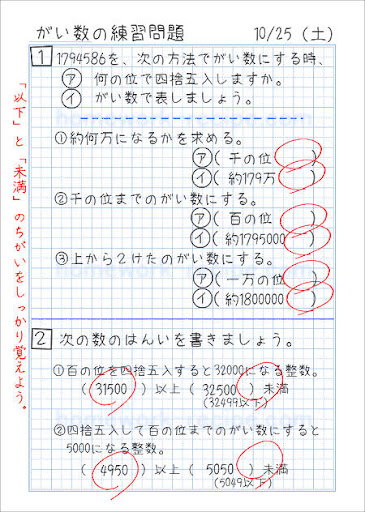 がい数の練習問題 10/25(土)
1 1794586を、次の方法でがい数にする時、
ア 何の位で四捨五入しますか。
イ がい数で表しましょう。
①約何万になるかを求める。
ア( 千の位 )
イ( 約179万 )
②千の位までのがい数にする。
ア( 百の位 )
イ( 約1795000 )
③上から2けたのがい数にする。
ア( 一万の位 )
イ( 約1800000 )
2 次の数のはんいを書きましょう。
①百の位を四捨五入すると32000になる整数。
( 31500 )以上( 32500 )未満
(32499以下)
②四捨五入して百の位までのがい数にすると
5000になる整数。
( 4950 )以上( 5050 )未満
(5049以下)
「以下」と「未満」のちがいをしっかり覚えよう。